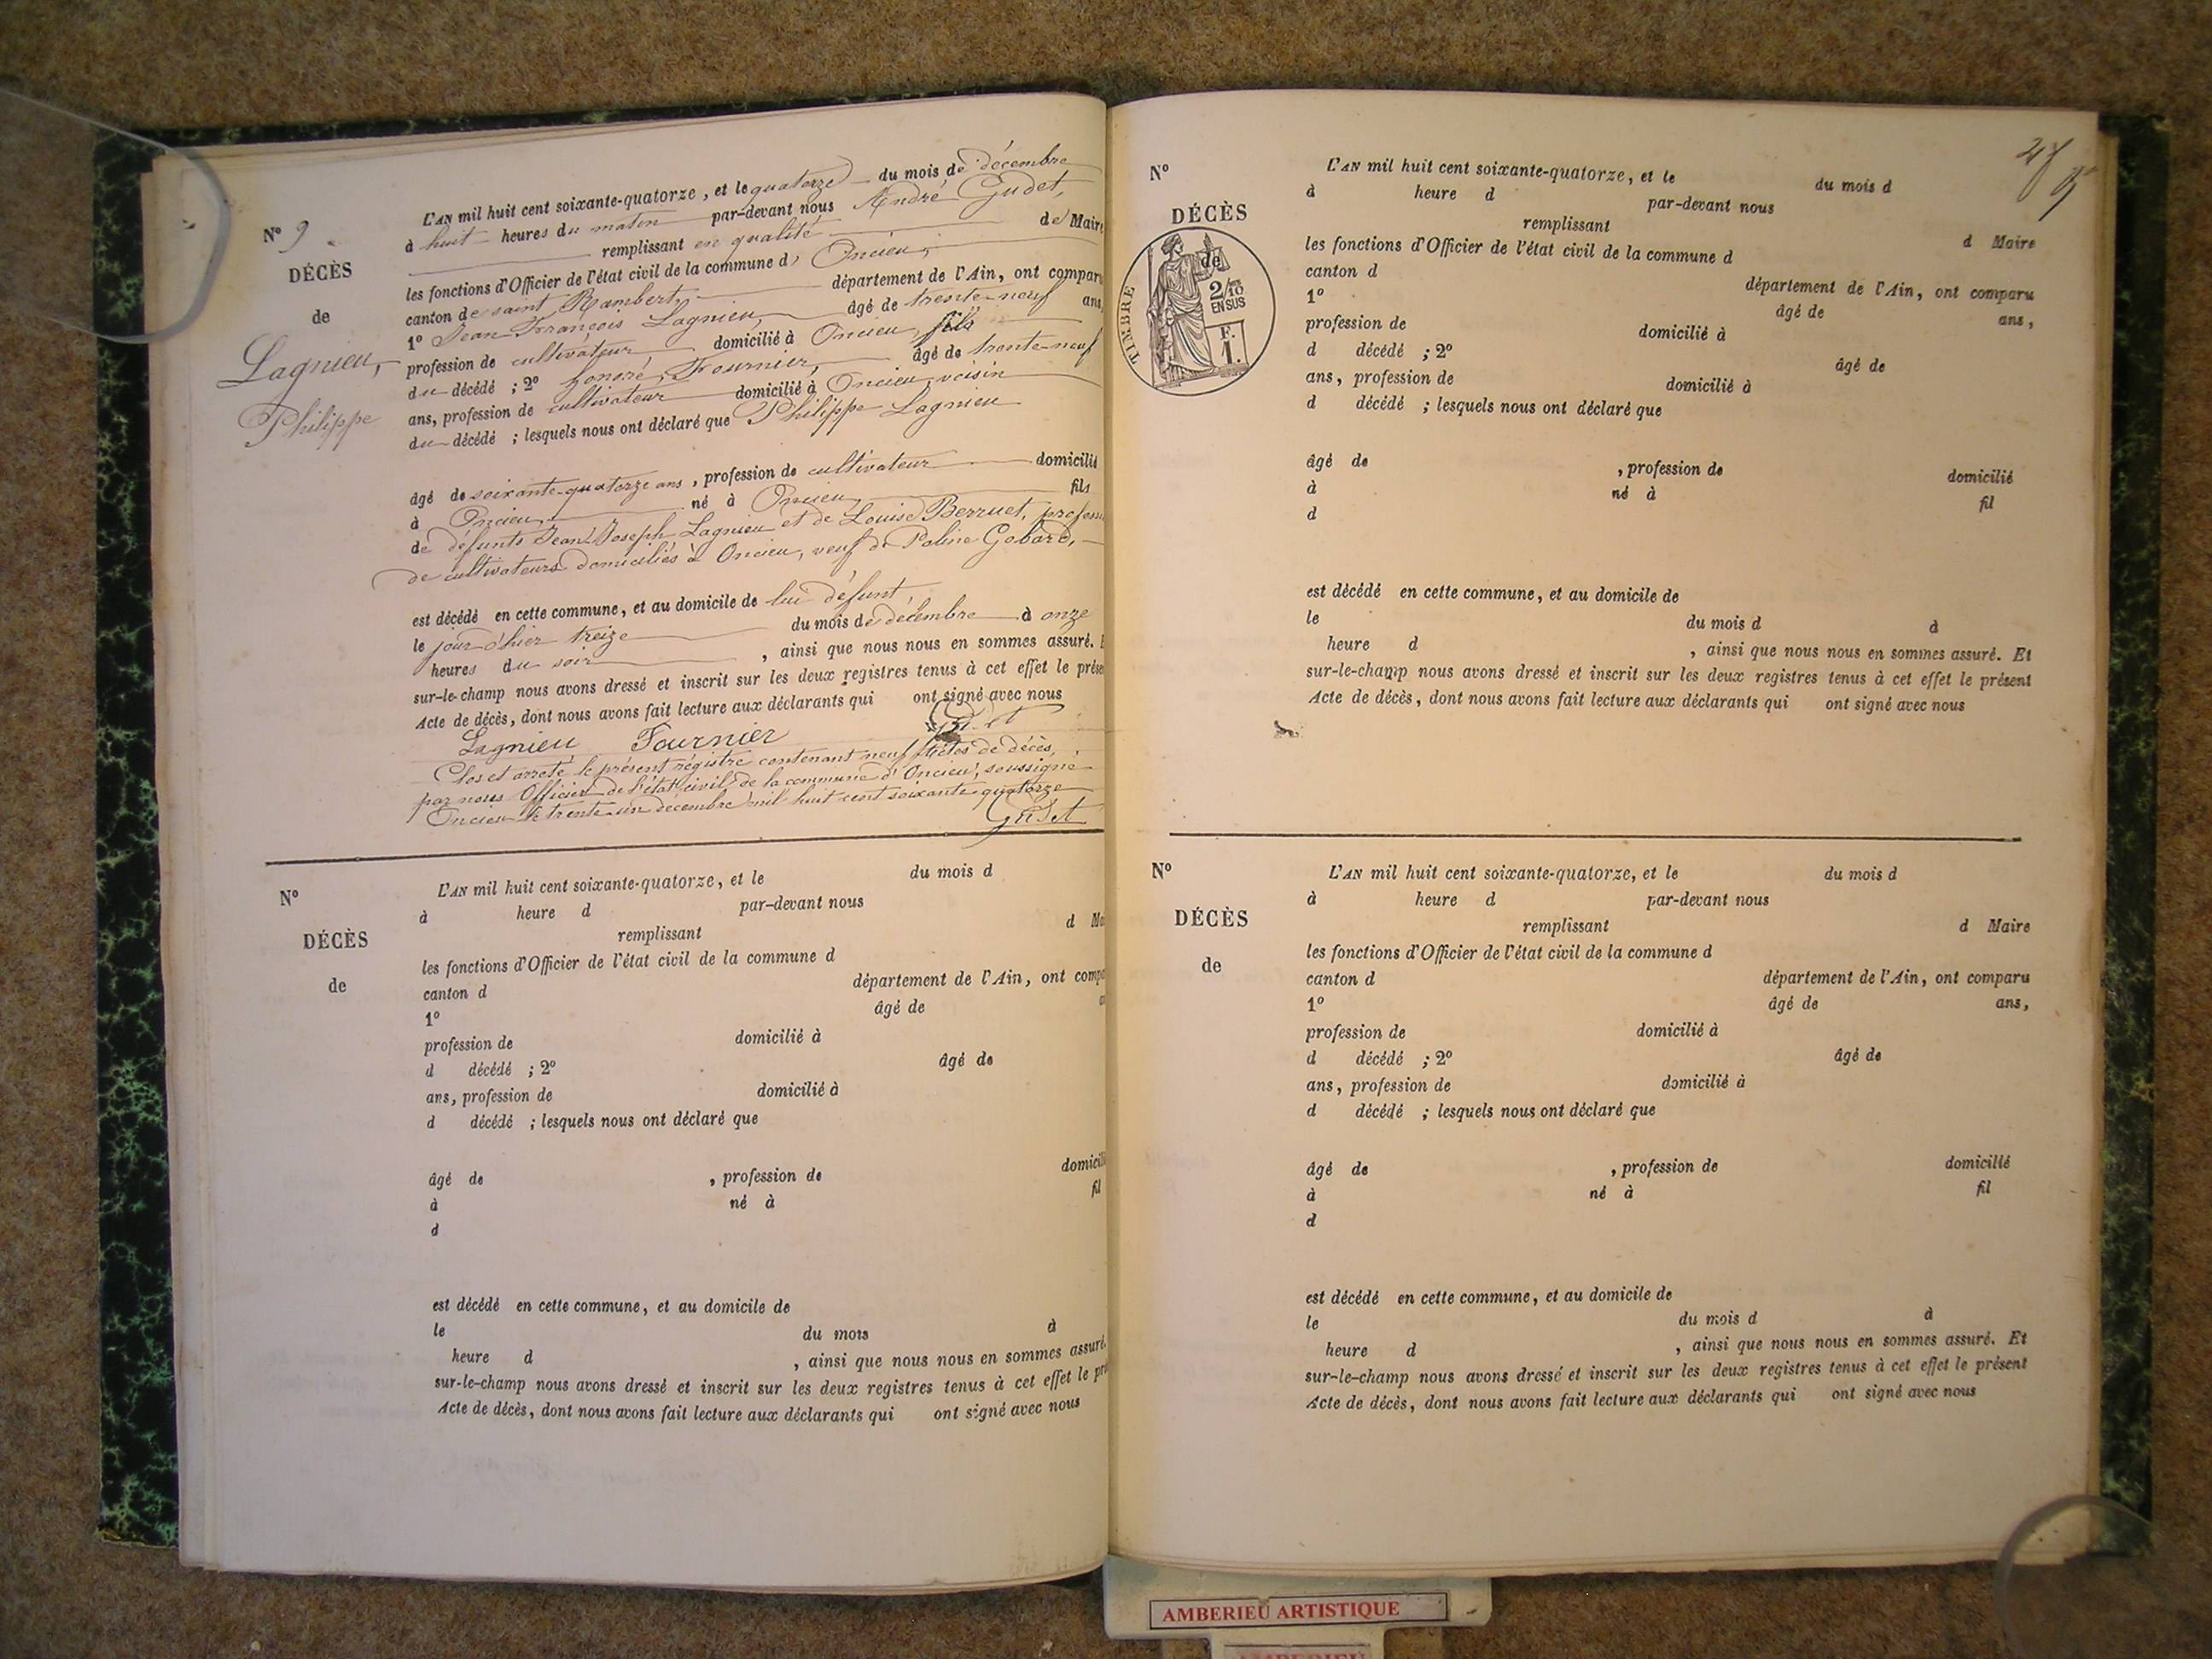 N° 9
DÉCÈS
de
Lagnieu,
Philippe
L'AN mil huit cent soixante-quatorze, et le quatorze du mois de décembre
à huit heures du matin par-devant nous André Gudet,
remplissant en qualité de Maire
les fonctions d'Officier de l'état civil de la commune d' Oncieu,
canton de saint Rambert, département de l'Ain, ont comparu
1° Jean François Lagnieu, âgé de trente-neuf ans,
profession de cultivateur domicilié à Oncieu, fils
du décédé ; 2° honoré Fournier, âgé de trente-neuf
ans, profession de cultivateur domicilié à Oncieu, voisin
du décédé ; lesquels nous ont déclaré que Philippe Lagnieu
âgé de soixante-quatorze ans, profession de cultivateur domicilié
à Oncieu, né à Oncieu, fils
de défunts Jean Joseph Lagnieu et de Louise Berruet,
de cultivateurs domiciliés à Oncieu, veuf de Poline Gobard,
est décédé en cette commune, et au domicile de lui défunt,
le jour d'hier treize du mois de décembre à onze
heures du soir, ainsi que nous nous en sommes assuré.
sur-le-champ nous avons dressé et inscrit sur les deux registres tenus à cet effet le
Acte de décès, dont nous avons fait lecture aux déclarants qui ont signé avec nous
Lagnieu Fournier
Clos et arrêté le présent régistre contenant neuf actes de décès,
par nous Officier de l'état civil de la commune d'Oncieu, soussigné
Oncieu le trente-un décembre mil huit cent soixante quatorze
Gudet
N°
DÉCÈS
de
L'AN mil huit cent soixante-quatorze, et le du mois d
à heure d par-devant nous
remplissant d
les fonctions d'Officier de l'état civil de la commune d
canton d département de l'Ain, ont
1° âgé de
profession de domicilié à
d décédé ; 2° âgé de
ans, profession de domicilié à
d décédé ; lesquels nous ont déclaré que
âgé de , profession de domicilié
à né à fil
d
est décédé en cette commune, et au domicile de
le du mois à
heure d , ainsi que nous nous en sommes assuré.
sur-le-champ nous avons dressé et inscrit sur les deux registres tenus à cet effet le
Acte de décès, dont nous avons fait lecture aux déclarants qui ont signé avec nous
N°
DÉCÈS
de
TIMBRE
2/10
EN SUS
F.
1.
L'AN mil huit cent soixante-quatorze, et le du mois d
à heure d par-devant nous
remplissant d Maire
les fonctions d'Officier de l'état civil de la commune d
canton d département de l'Ain, ont comparu
1° âgé de ans,
profession de domicilié à
d décédé ; 2° âgé de
ans, profession de domicilié à
d décédé ; lesquels nous ont déclaré que
âgé de , profession de domicilié
à né à fil
d
est décédé en cette commune, et au domicile de
le du mois d à
heure d , ainsi que nous nous en sommes assuré. Et
sur-le-champ nous avons dressé et inscrit sur les deux registres tenus à cet effet le présent
Acte de décès, dont nous avons fait lecture aux déclarants qui ont signé avec nous
N°
DÉCÈS
de
L'AN mil huit cent soixante-quatorze, et le du mois d
à heure d par-devant nous
remplissant d Maire
les fonctions d'Officier de l'état civil de la commune d
canton d département de l'Ain, ont comparu
1° âgé de ans,
profession de domicilié à
d décédé ; 2° âgé de
ans, profession de domicilié à
d décédé ; lesquels nous ont déclaré que
âgé de , profession de domicilié
à né à fil
d
est décédé en cette commune, et au domicile de
le du mois d à
heure d , ainsi que nous nous en sommes assuré. Et
sur-le-champ nous avons dressé et inscrit sur les deux registres tenus à cet effet le présent
Acte de décès, dont nous avons fait lecture aux déclarants qui ont signé avec nous
AMBERIEU ARTISTIQUE
AMBERIEU